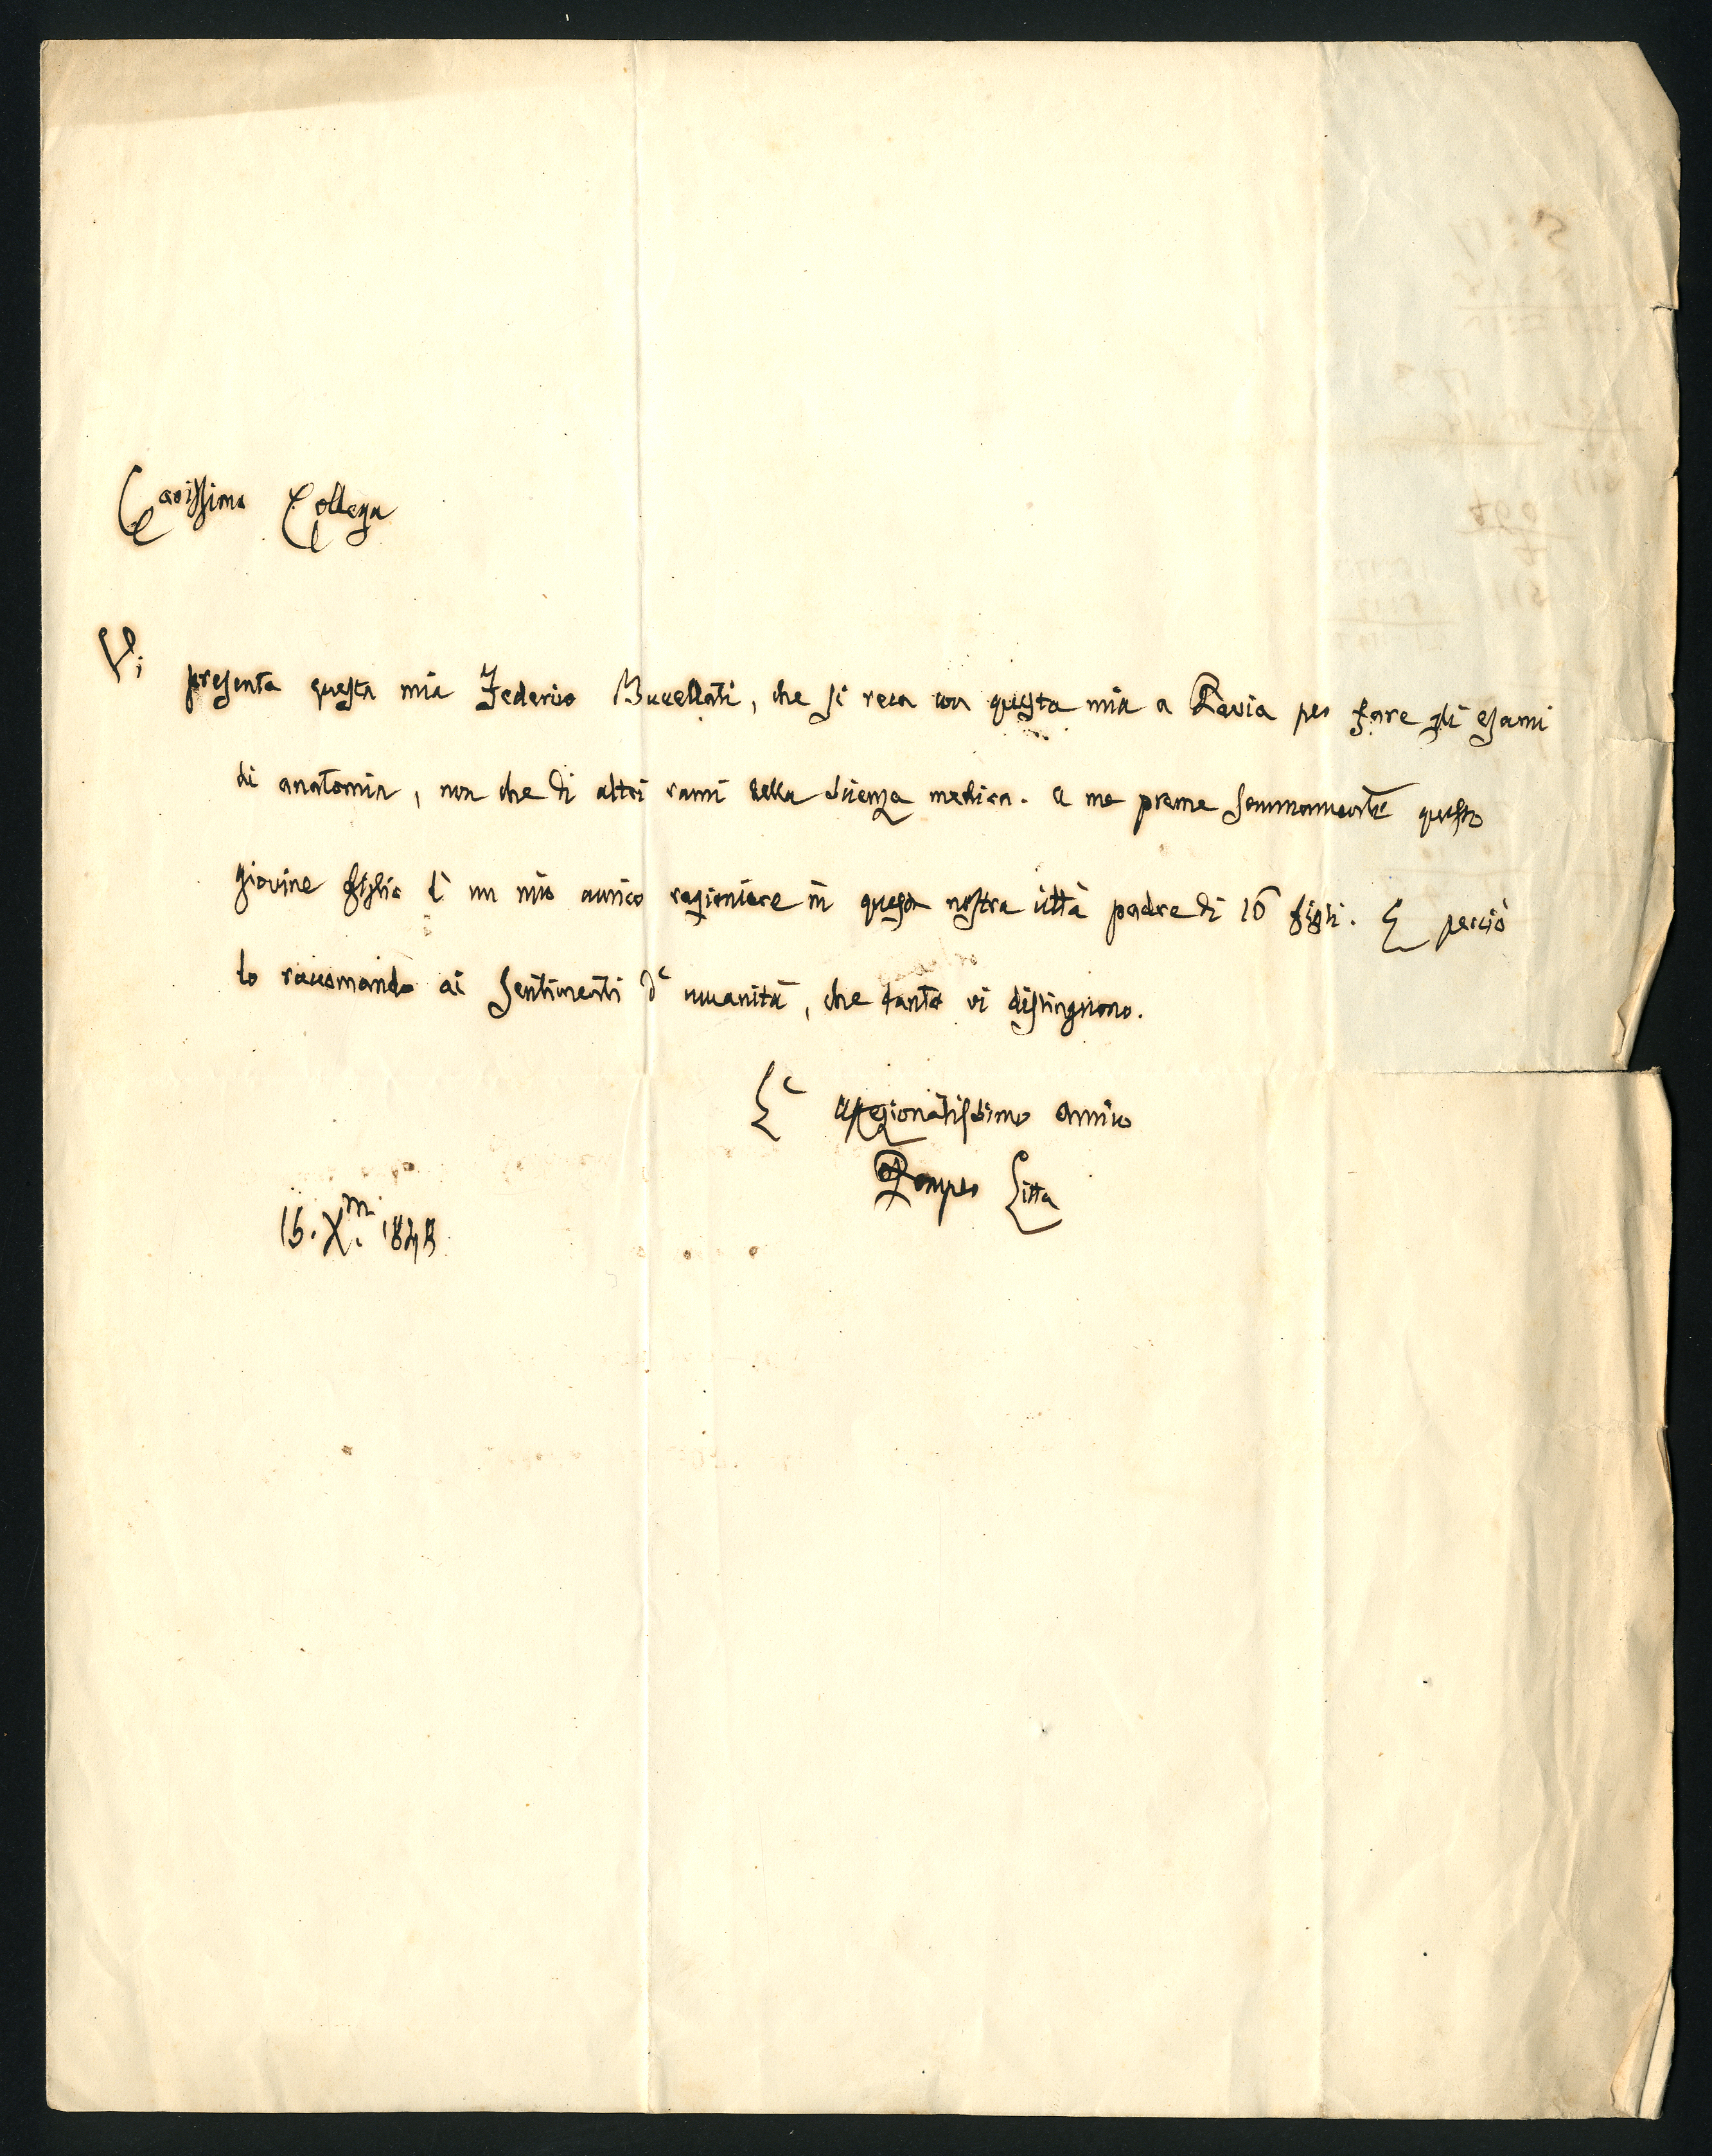 Carissimo Collega
Vi presenta questa mia Federico Bucellati, che si reca con questa mia a Pavia per fare gli esami
di anatomia, non che di altri rami della scienza medica. A me preme sommamente questo
giovine figlio di un mio amico ragioniere in questa nostra città padre di 16 figli. E perciò
lo raccomando ai sentimenti d' umanità, che tanto vi distinguono.
L' affezionatissimo amico
Pompeo Litta
16. Xm. 1848